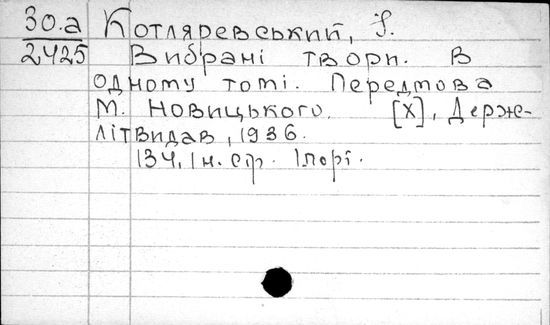 30.а Котляревський, І.
2425 Вибрані твори. В
одному томі. Передмова
М. Новицького. [Х], Держ-
літвидав, 1936.
134, 1 н. ст. 1 порт.